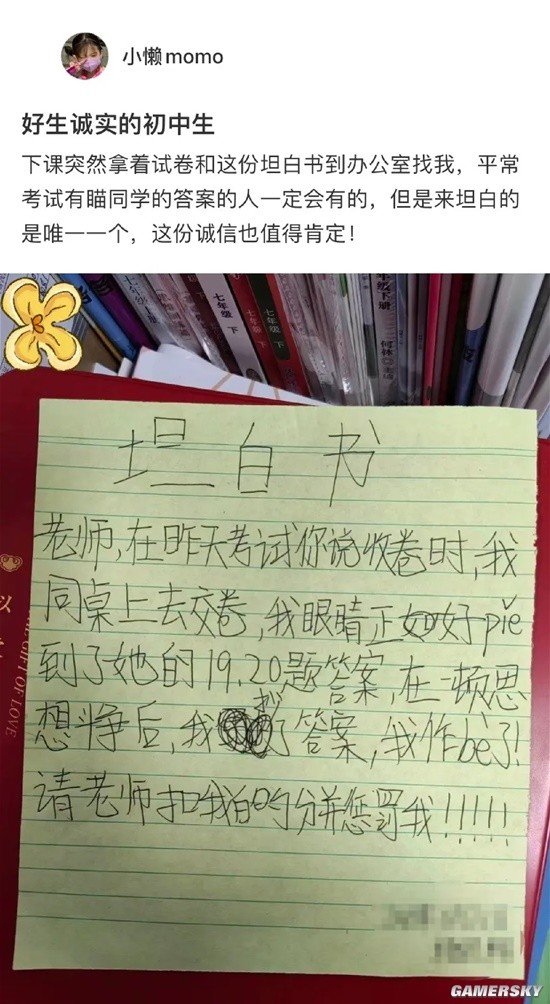 小懒momo
好生诚实的初中生
下课突然拿着试卷和这份坦白书到办公室找我，平常
考试有瞄同学的答案的人一定会有的，但是来坦白的
是唯一一个，这份诚信也值得肯定！
七年级 下
七年级 下
七年级 下
年级下册
坦白书
老师,在昨天考试你说收卷时,我
同桌上去交卷,我眼睛正好piě
到了她的19.20题答案,在一顿思
想争后,我抄了答案,我作bì了!
请老师扣我的分并惩罚我!!!!!
GIFT OF LOVE
GAMERSKY